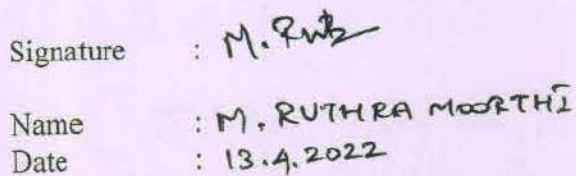 Signature : M. Rutz
Name : M. RUTHRA MOORTHI
Date : 13.4.2022